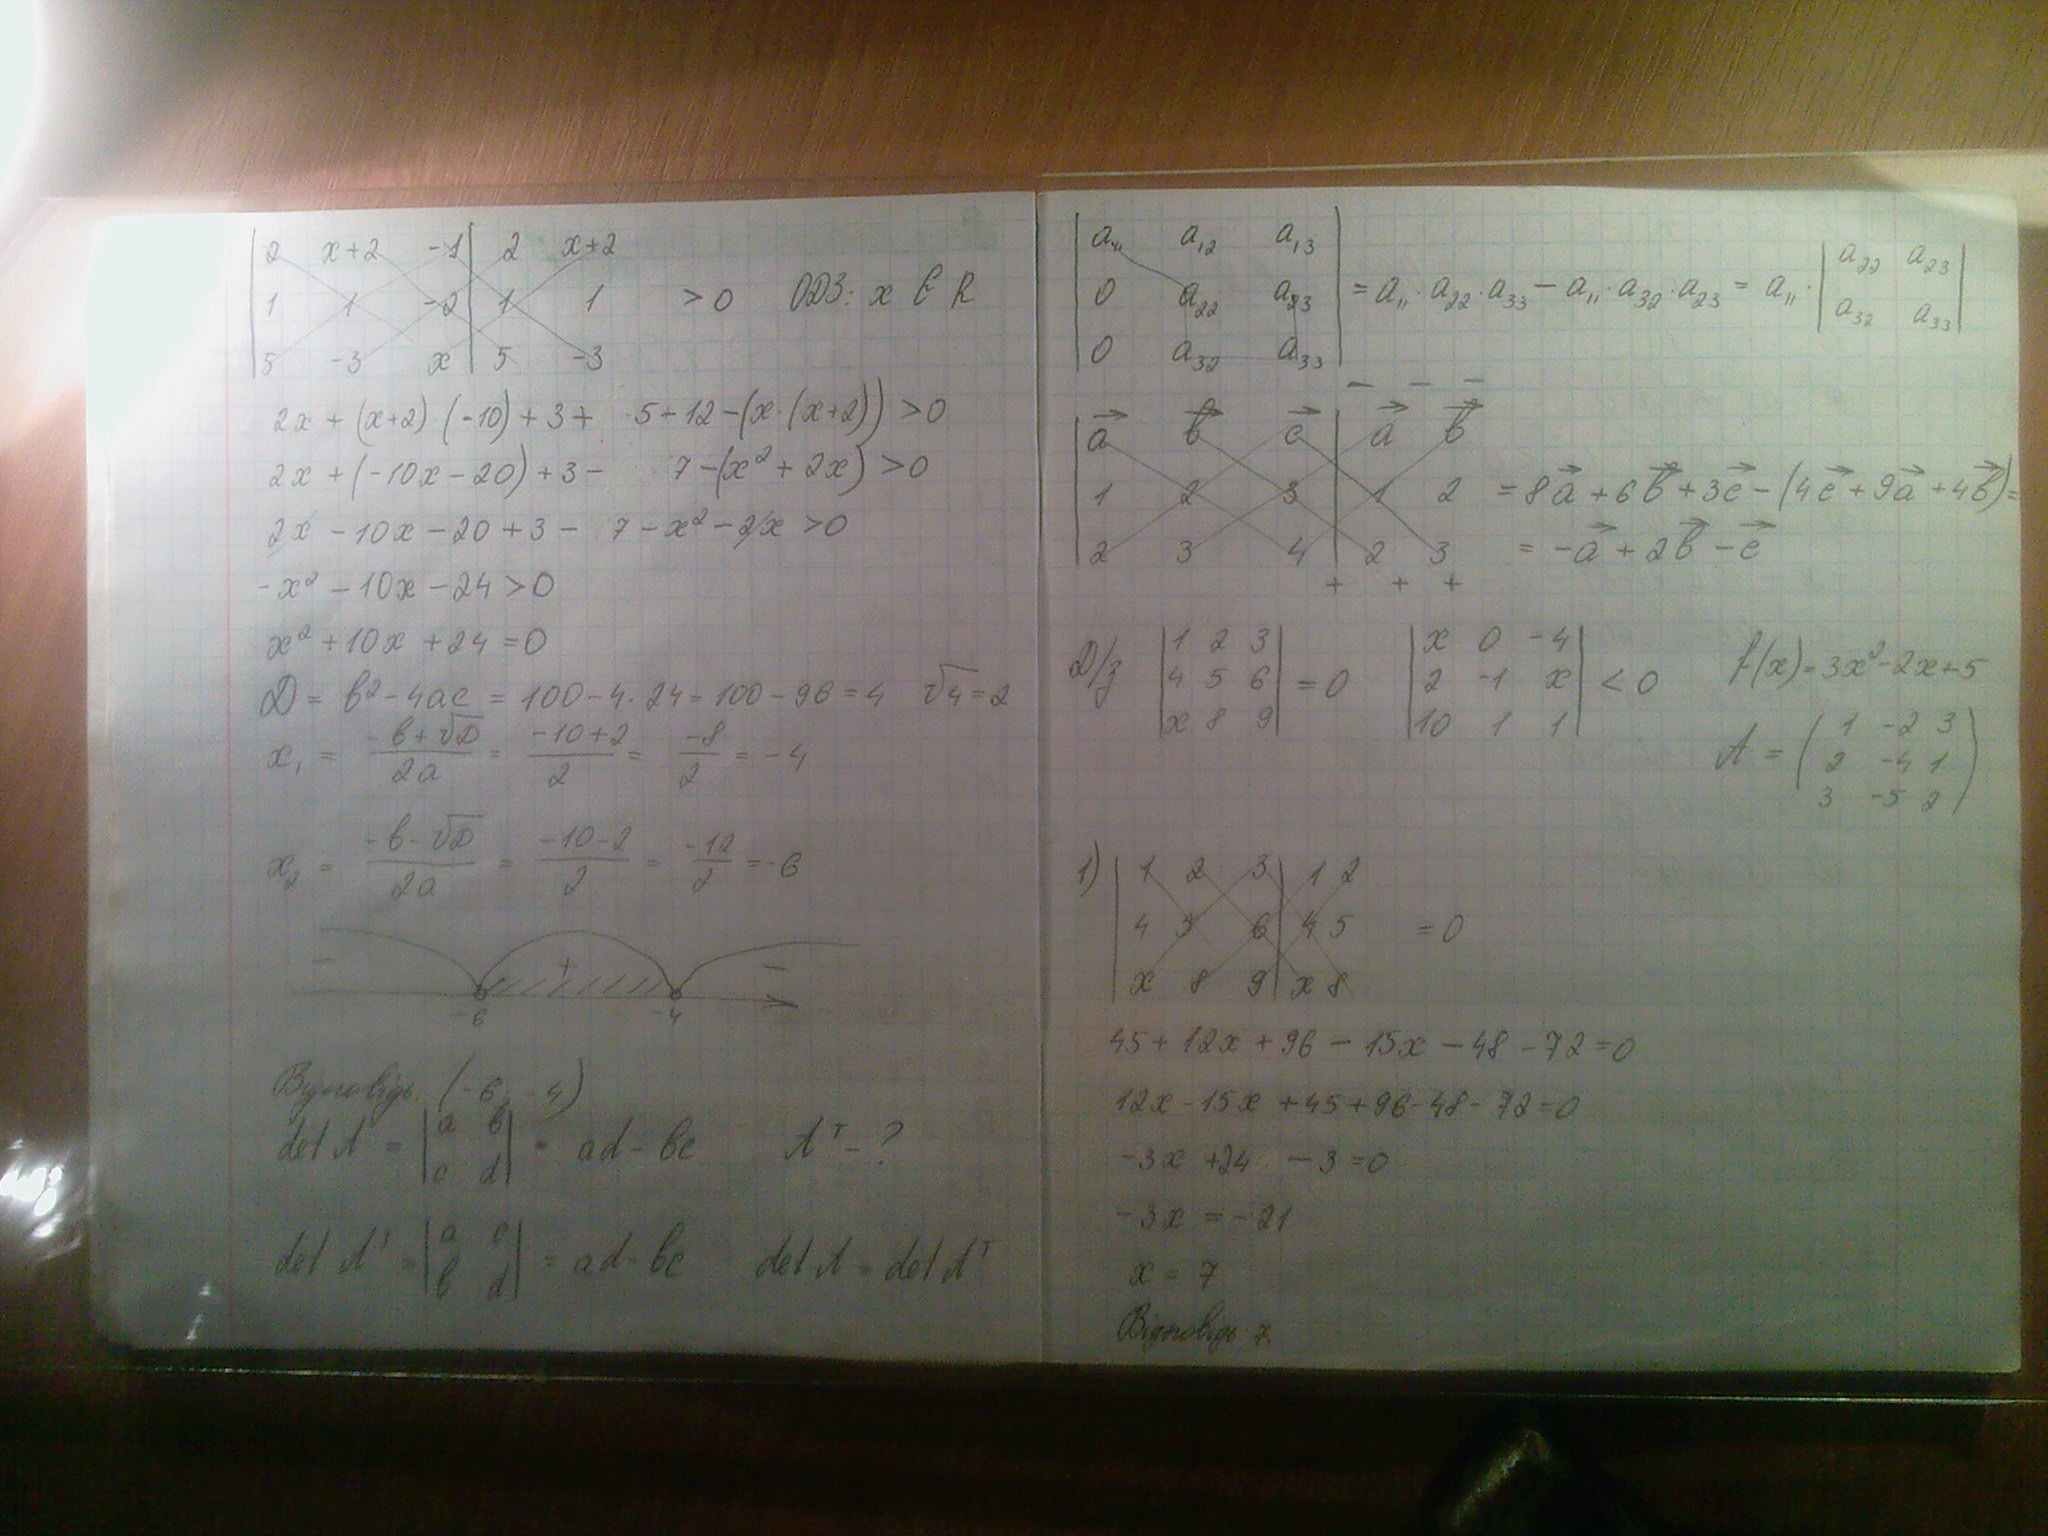 | 2 x+2 -1 | 2 x+2
| 1 1 -2 | 1 1 > 0 ОДЗ: x ∈ R
| 5 -3 x | 5 -3
2x + (x+2)·(-10) + 3 + 5 - 12 - (x·(x+2)) > 0
2x + (-10x - 20) + 3 - 7 - (x² + 2x) > 0
2x - 10x - 20 + 3 - 7 - x² - 2x > 0
-x² - 10x - 24 > 0
x² + 10x + 24 = 0
D = b² - 4ac = 100 - 4·24 = 100 - 96 = 4 √4 = 2
x₁ = (-b+√D)/2a = (-10+2)/2 = -8/2 = -4
x₂ = (-b-√D)/2a = (-10-2)/2 = -12/2 = -6
- + -
-6 -4
Відповідь: (-6; -4)
det A = | a b |
| c d | = ad - bc Aᵀ - ?
det Aᵀ = | a c |
| b d | = ad - bc det A = det Aᵀ
| a₁₁ a₁₂ a₁₃ |
| 0 a₂₂ a₂₃ | = a₁₁·a₂₂·a₃₃ - a₁₁·a₃₂·a₂₃ = a₁₁· | a₂₂ a₂₃ |
| 0 a₃₂ a₃₃ | | a₃₂ a₃₃ |
- - -
| a⃗ b⃗ c⃗ | a⃗ b⃗
| 1 2 3 | 1 2 = 8a⃗ + 6b⃗ + 3c⃗ - (4c⃗ + 9a⃗ + 4b⃗) =
| 2 3 4 | 2 3 = -a⃗ + 2b⃗ - c⃗
+ + +
Д/з | 1 2 3 | | x 0 -4 | f(x) = 3x² - 2x + 5
| 4 5 6 | = 0 | 2 -1 x | < 0
| x 8 9 | | 10 1 1 |
A = ( 1 -2 3 )
( 2 -4 1 )
( 3 -5 2 )
1) | 1 2 3 | 1 2
| 4 5 6 | 4 5 = 0
| x 8 9 | x 8
45 + 12x + 96 - 15x - 48 - 72 = 0
12x - 15x + 45 + 96 - 48 - 72 = 0
-3x + 24 - 3 = 0
-3x = -21
x = 7
Відповідь 7.